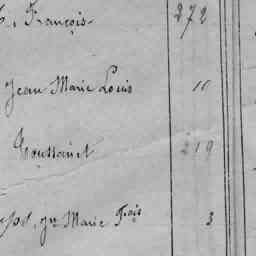 François 272
Jean Marie Louis 10
Toussaint 219
Jn Marie Fois 3